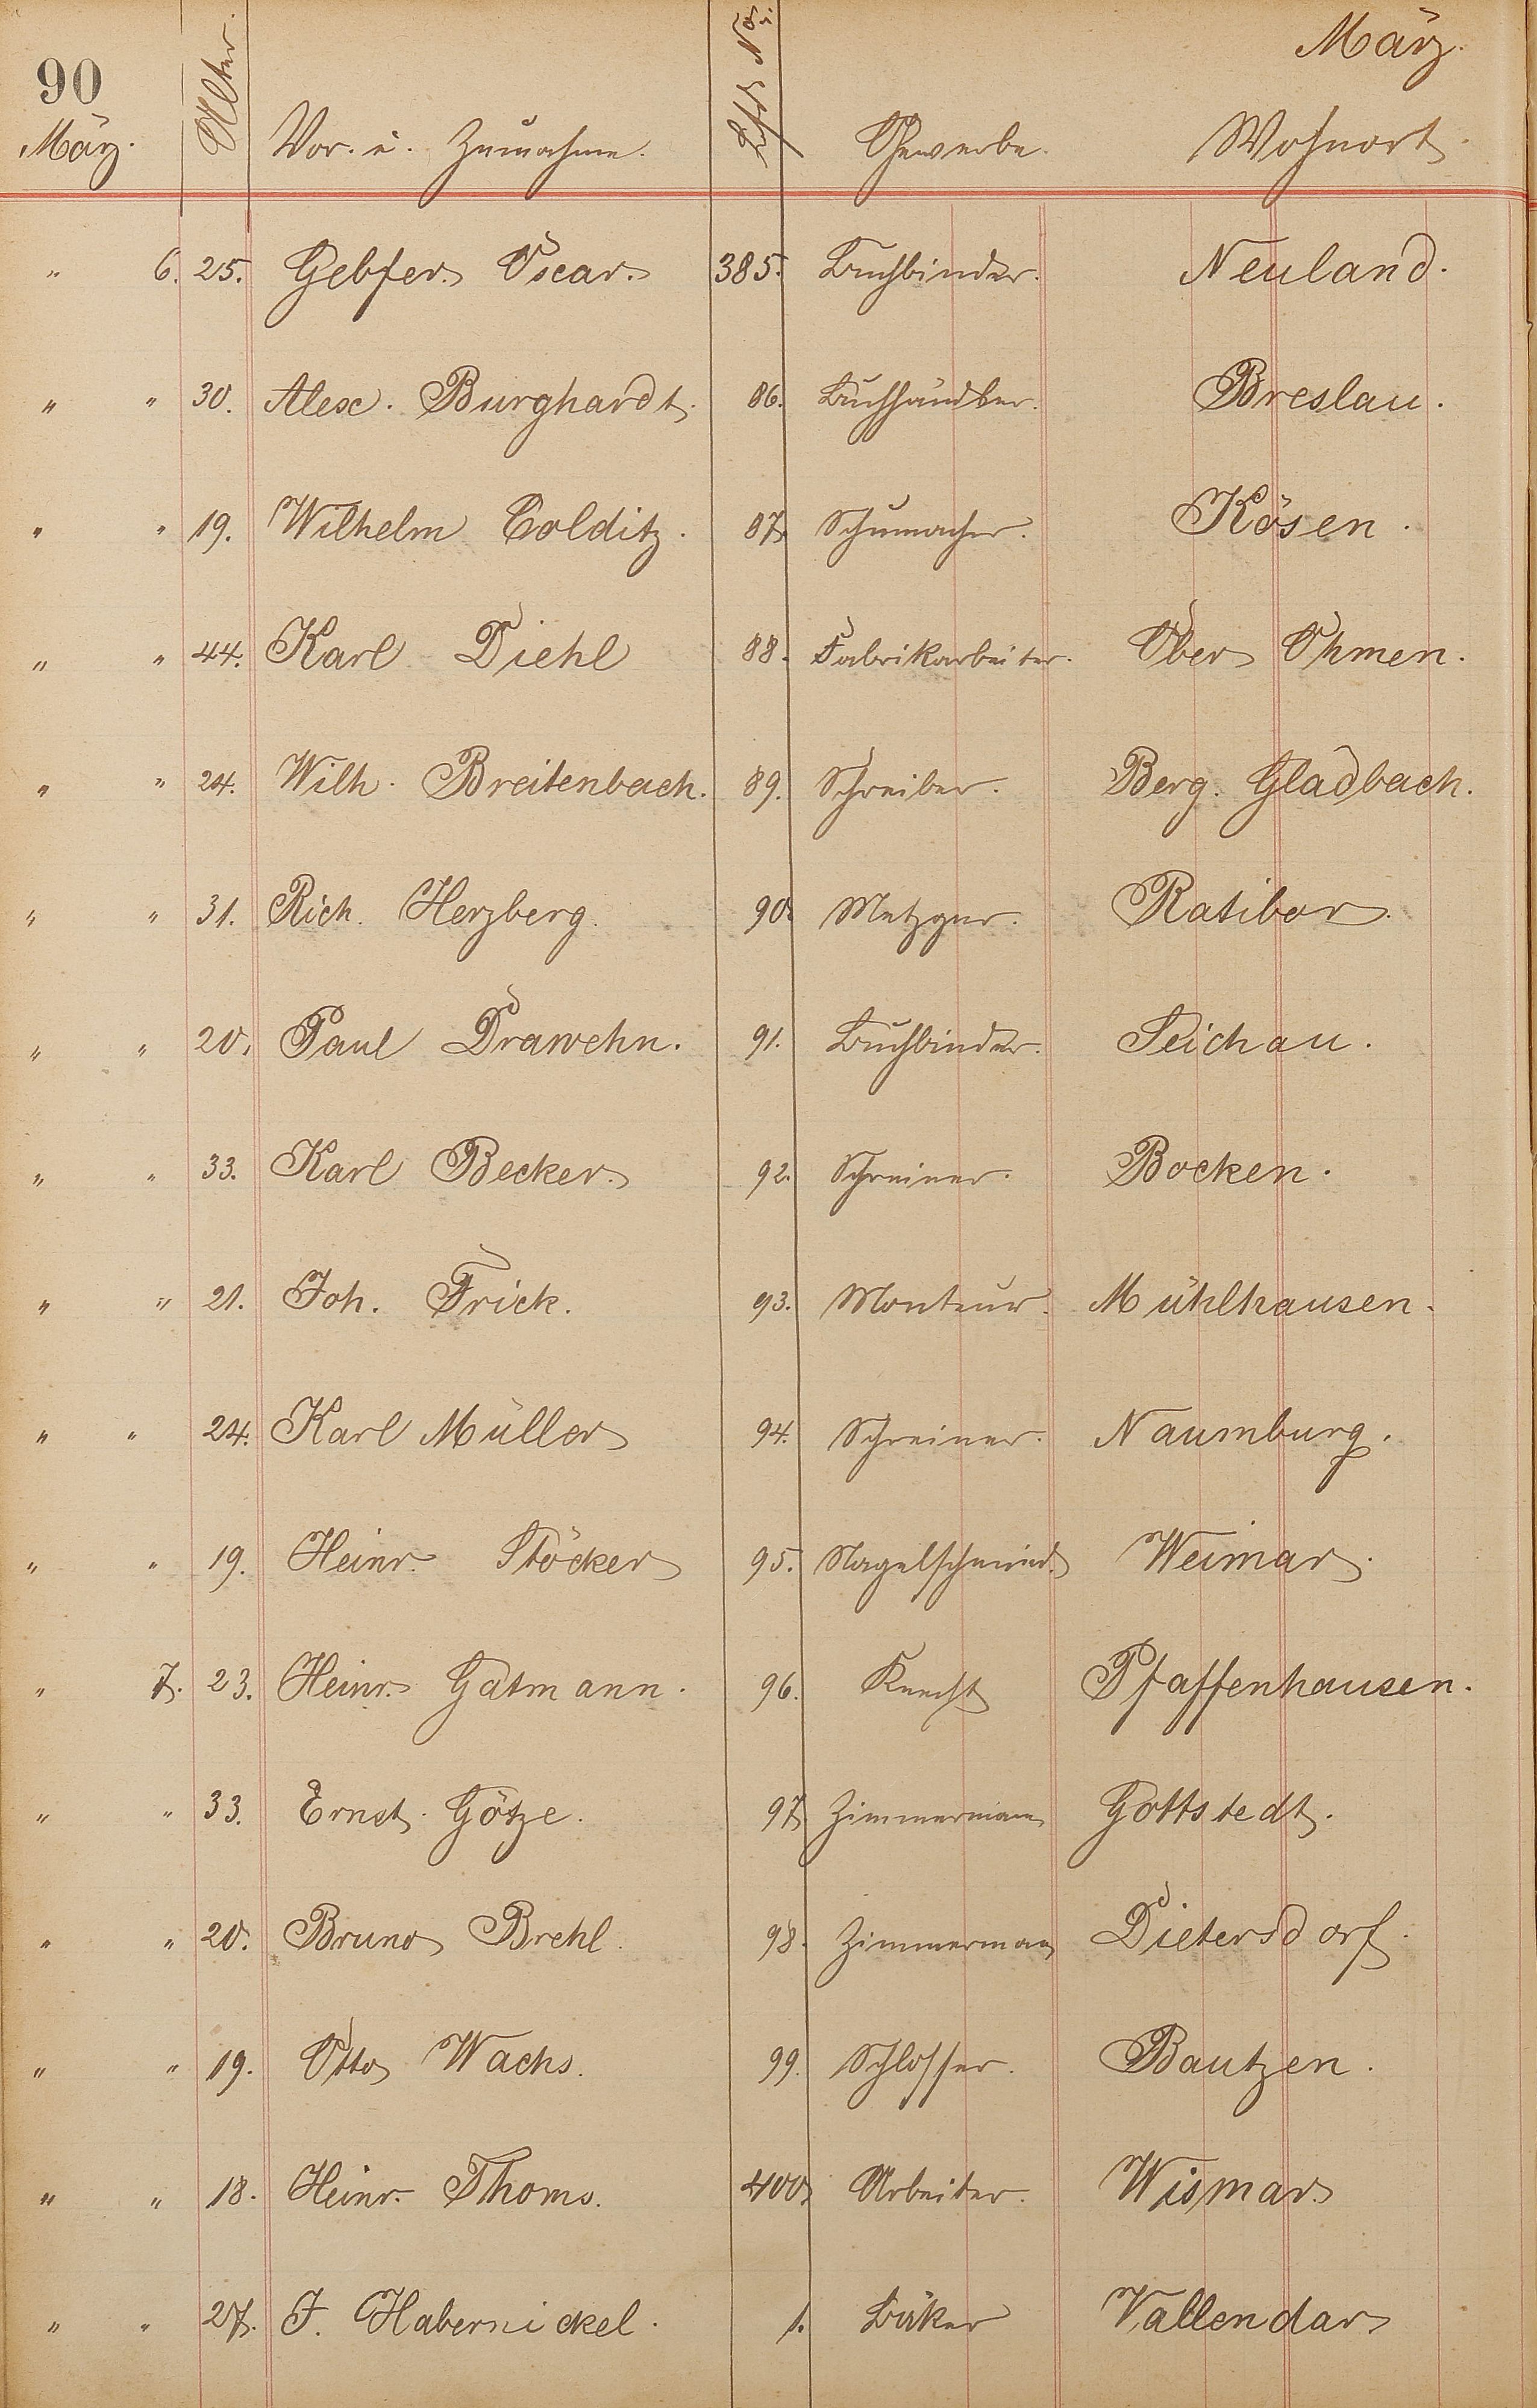 März.
90
März. Alter. Vor. u. Zunahme. Lfde No. Gewerbe. Wohnort.
" 6. 25. Gebfer. Oscar. 385. Buchbinder. Neuland.
" " 30. Alex. Burghardt. 86. Buchhändler. Breslau.
" " 19. Wilhelm Colditz. 87. Schumacher. Kösen.
" " 44. Karl Diehl 88. Fabrikarbeiter. Ober Ohmen.
" " 24. Wilh. Breitenbach. 89. Schreiber. Berg. Gladbach.
" " 31. Rich. Herzberg. 90. Metzger. Ratibor.
" " 20. Paul Drawehn. 91. Buchbinder. Seichau.
" " 33. Karl Becker. 92. Schreiner. Bocken.
" " 21. Joh. Frick. 93. Monteur. Mühlhausen.
" " 24. Karl Müller 94. Schreiner. Naumburg.
" " 19. Heinr. Stöcker 95. Nagelschmied. Weimar.
" 7. 23. Heinr. Gatmann. 96. Knecht Pfaffenhausen.
" " 33. Ernst. Götze. 97. Zimmermann Gottstedt.
" " 20. Bruno Brehl. 98. Zimmermann Dietersdorf.
" " 19. Otto Wachs. 99. Schlosser. Bautzen.
" " 18. Heinr. Thoms. 400. Arbeiter. Wismar.
" " 27. J. Habernickel. 1. Bäker Vallendar